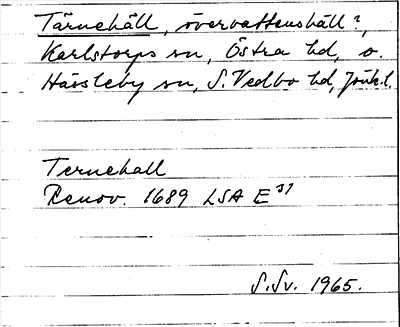 Tärnehäll, övervattenshäll?,
Karlstorps sn, Östra hd, o.
Hässleby sn, S. Vedbo hd, Jönk. l.
Ternehall
Renov. 1689 LSA E 31
S. Sv. 1965.